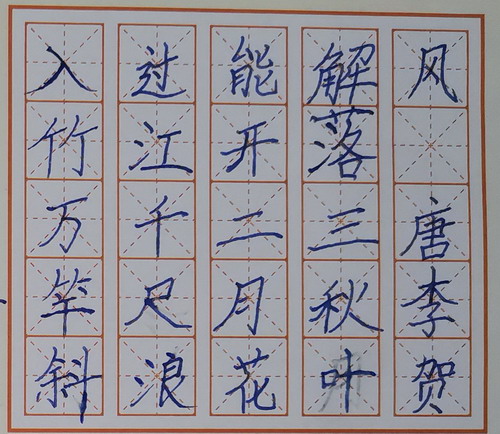 风 唐李贺
解落三秋叶
能开二月花
过江千尺浪
入竹万竿斜